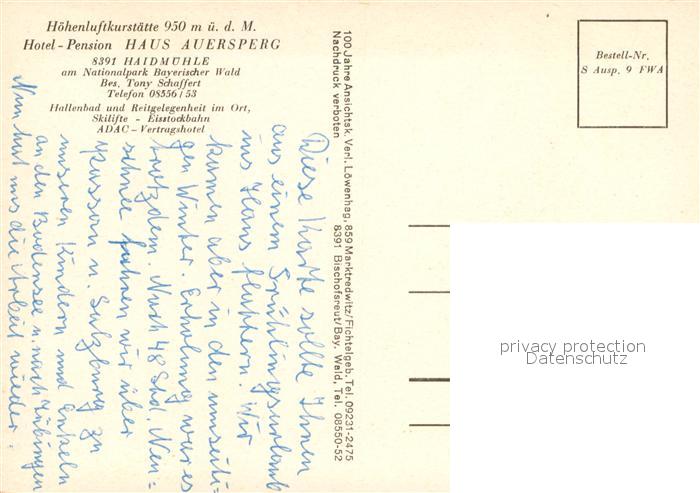 Höhenluftkurstätte 950 m ü. d. M.
Hotel - Pension HAUS AUERSPERG
8391 HAIDMÜHLE
am Nationalpark Bayerischer Wald
Bes. Tony Schaffert
Telefon 08556 / 53
Hallenbad und Reitgelegenheit im Ort,
Skilifte - Eisstockbahn
ADAC - Vertragshotel
Diese Karte sollte Ihnen
aus einem Frühlingsurlaub
ins Haus flattern. Wir
kamen aber in den unzeiti-
gen Winter. Erholung war es
trotzdem. Nach 48 Std. Neu-
schnee fuhren wir über
Passau u. Salzburg zu
unseren Kindern und Enkeln
an den Bodensee u. nach Tübingen
Nun hat uns die Arbeit wieder.
100 Jahre Ansichtsk. Verl. Löwenhag, 859 Marktredwitz/Fichtelgeb. Tel. 09231-2475
Nachdruck verboten 8391 Bischofsreut/Bay. Wald, Tel. 08550-52
Bestell-Nr.
S Ausp. 9 FWA
privacy protection
Datenschutz